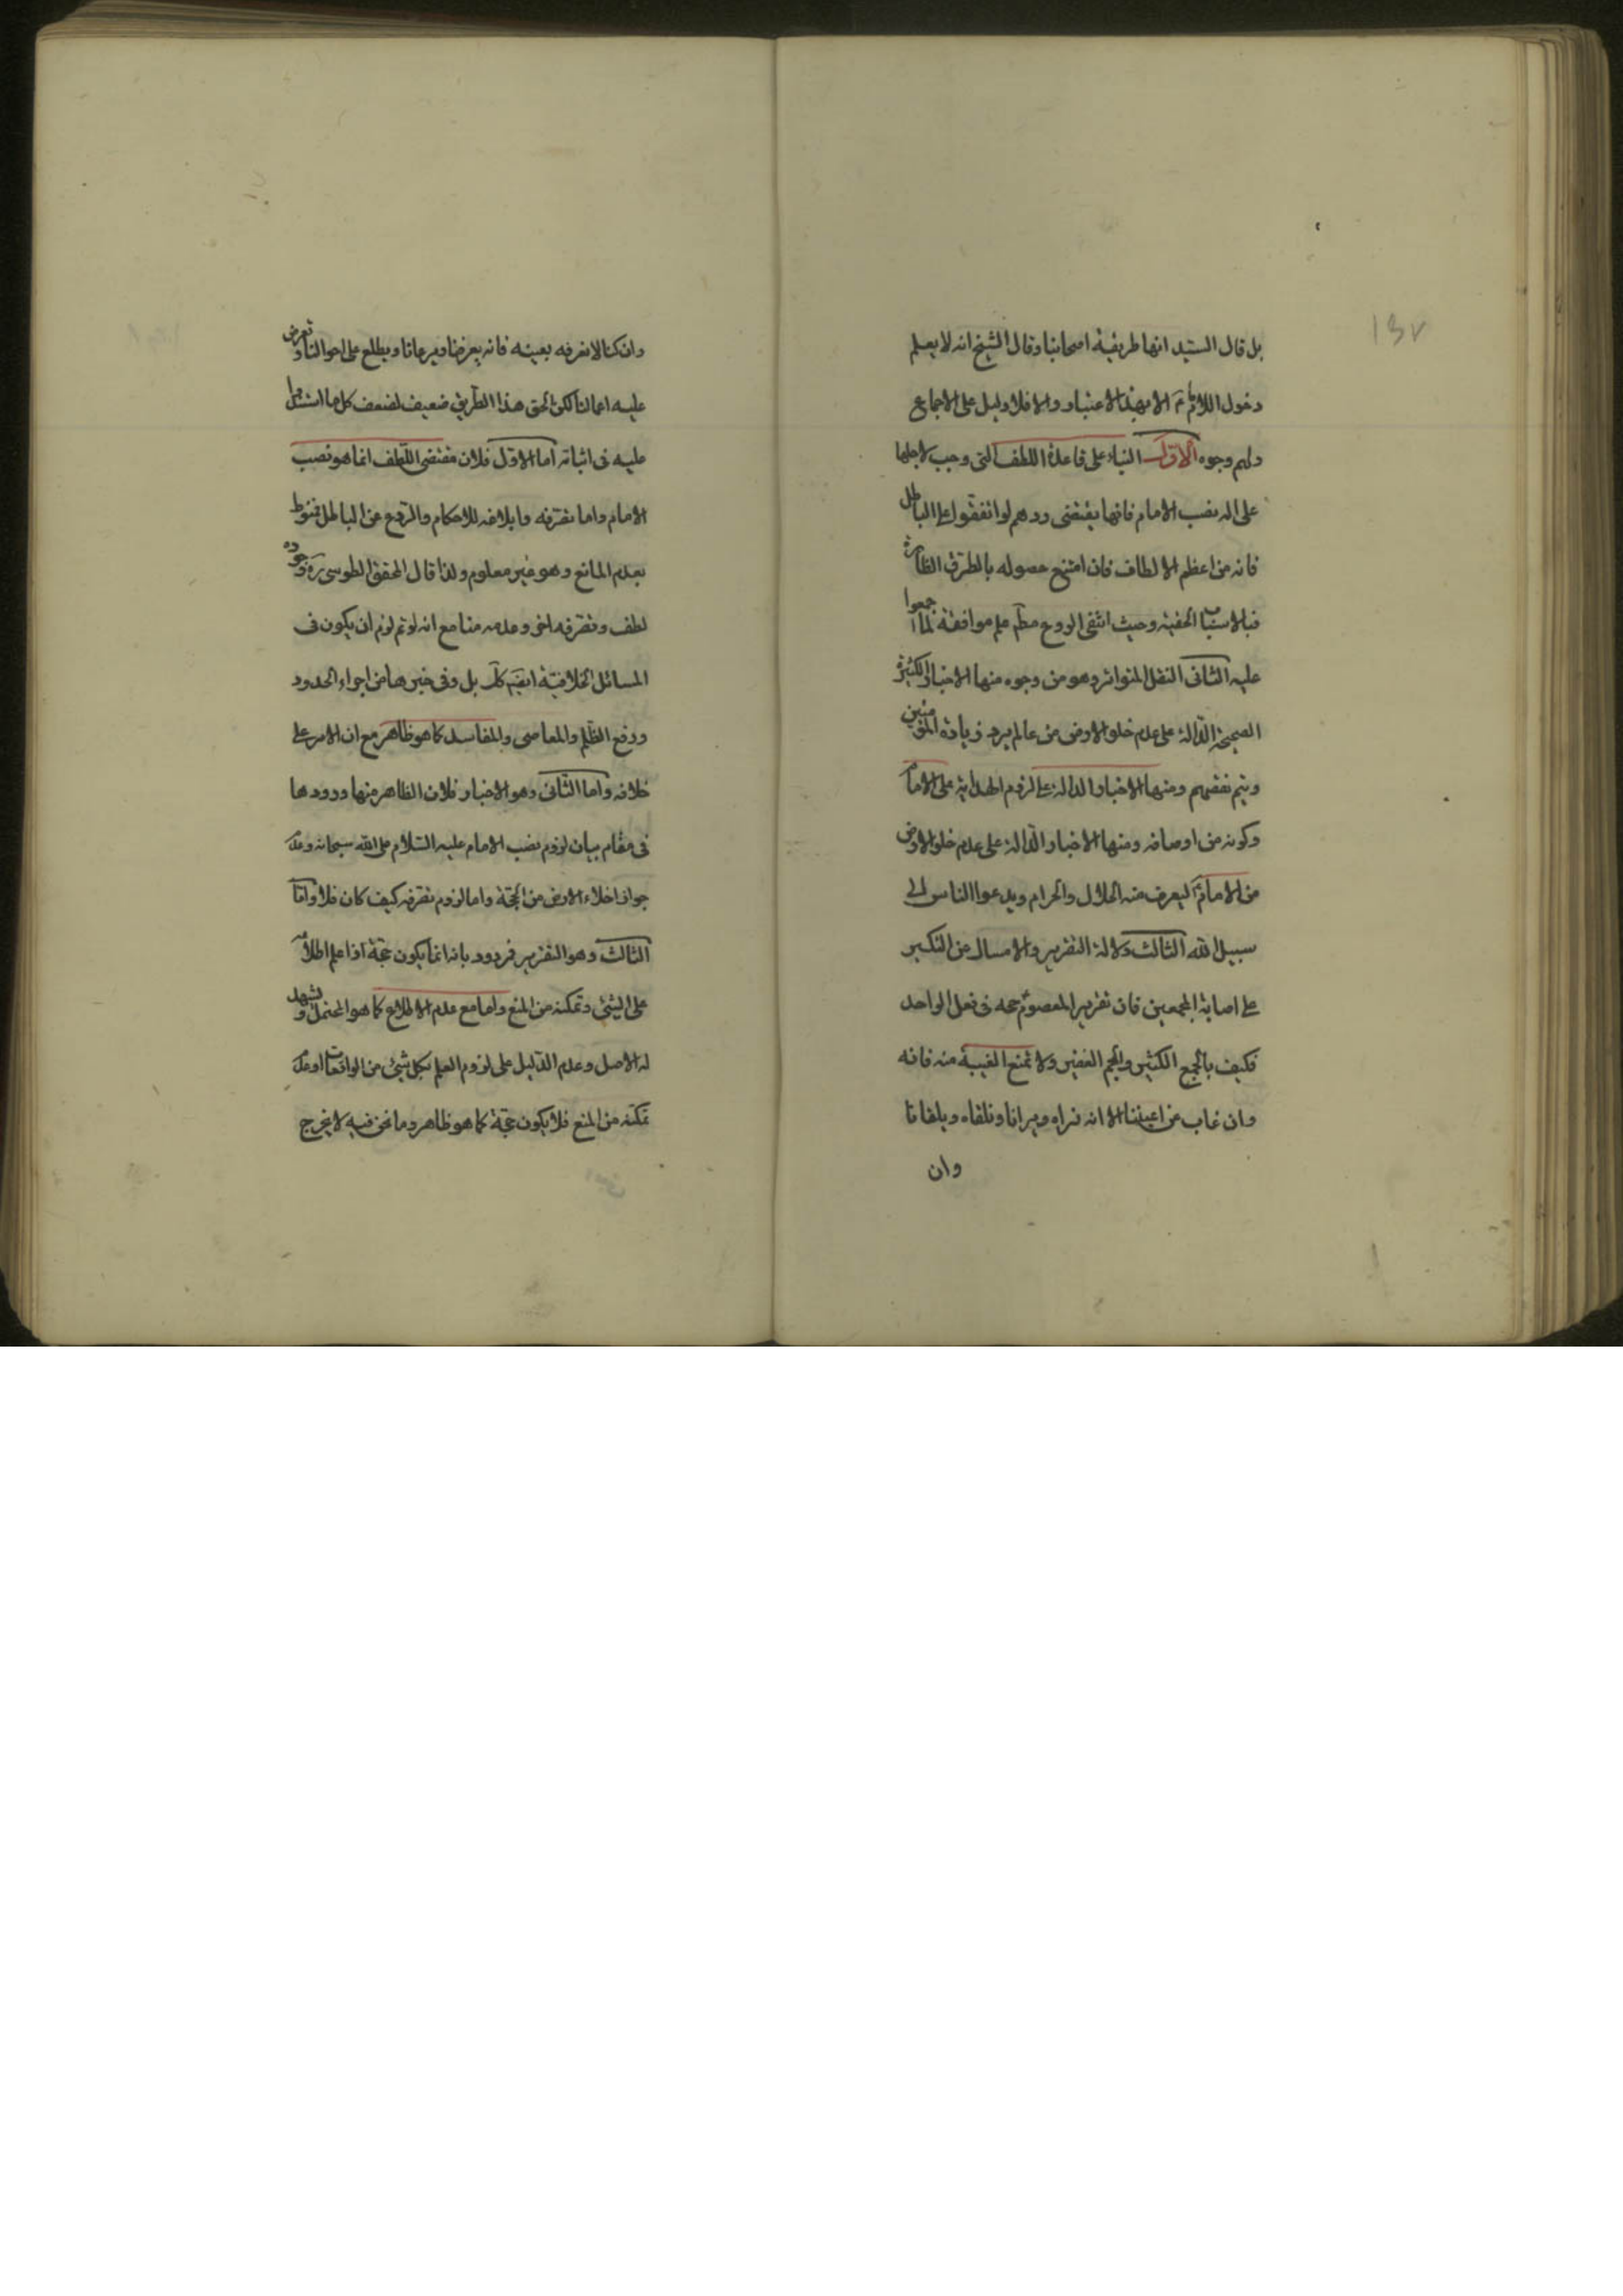 ١٣٧
بل قال السيد انها طريقة اصحابنا وقال الشيخ انه لا يعلم
دخول الامام الا بهذا الاعتبار والا فلا دليل على الاجماع
ولهم وجوه الاول البناء على قاعدة اللطف التى وجب لاجلها
على الله نصب الامام فانها يقتضى ردهم لو اتفقوا على الباطل
فانه من اعظم الالطاف فان امتنع حصوله بالطرق الظاهرة
فبالاسباب الخفية وحيث انتفى الردع مط علم موافقة لما اجمعوا
عليه الثانى النقل المتواتر وهو من وجوه منها الاخبار الكثيرة
الصحيحة الدالة على عدم خلو الارض من عالم يرد زيادة المؤمنين
ويتم نقصهم ومنها الاخبار الدالة على لزوم الهداية على الامام
وكونه من اوصافه ومنها الاخبار الدالة على عدم خلو الارض
من الامام ليعرف منه الحلال والحرام ويدعوا الناس الى
سبيل الله الثالث دلالة التقرير والامساك عن النكير
على اصابة المجمعين فان تقرير المعصوم حجه فى فعل الواحد
فكيف بالجمع الكثير والجم الغفير ولا تمنع الغيبة منه فانه
وان غاب عن اعيننا الا انه نراه ويرانا ونلقاه ويلقانا
وان
وان كنا لا نعرفه بعينه فانه يعرفنا ويرعانا ويطلع على احوالنا وتعرض
عليه اعمالنا لكن الحق هذا الطريق ضعيف لضعف كل ما استدلوا
عليه فى اثباته اما الاول فلان مقتضى اللطف انما هو نصب
الامام واما تصرفه وابلاغه للاحكام والردع عن الباطل فمنوط
بعدم المانع وهو غير معلوم ولذا قال المحقق الطوسى ره وجوده
لطف وتصرفه اخر وعدمه منا مع انه لو تم لزم ان يكون فى
المسائل الخلافية ايضا كك بل وفى غيرها من اجراء الحدود
ودفع الظلم والمعاصى والمفاسد كما هو ظاهر مع ان الامر على
خلافه واما الثانى وهو الاخبار فلان الظاهر منها ورودها
فى مقام بيان لزوم نصب الامام عليه السلام على الله سبحانه وعدم
جواز اخلاء الارض من الحجة واما لزوم تصرفه كيف كان فلا واما
الثالث وهو التقرير فمردود بانه انما يكون حجة اذا علم اطلاعه
على الشئ وتمكنه من المنع واما مع عدم الاطلاع كما هو المحتمل ويشهد
له الاصل وعدم الدليل على لزوم العلم بكل شئ من الواقعات او عدم
تمكنه من المنع فلا يكون حجة كما هو ظاهر وما نحن فيه لا يخرج